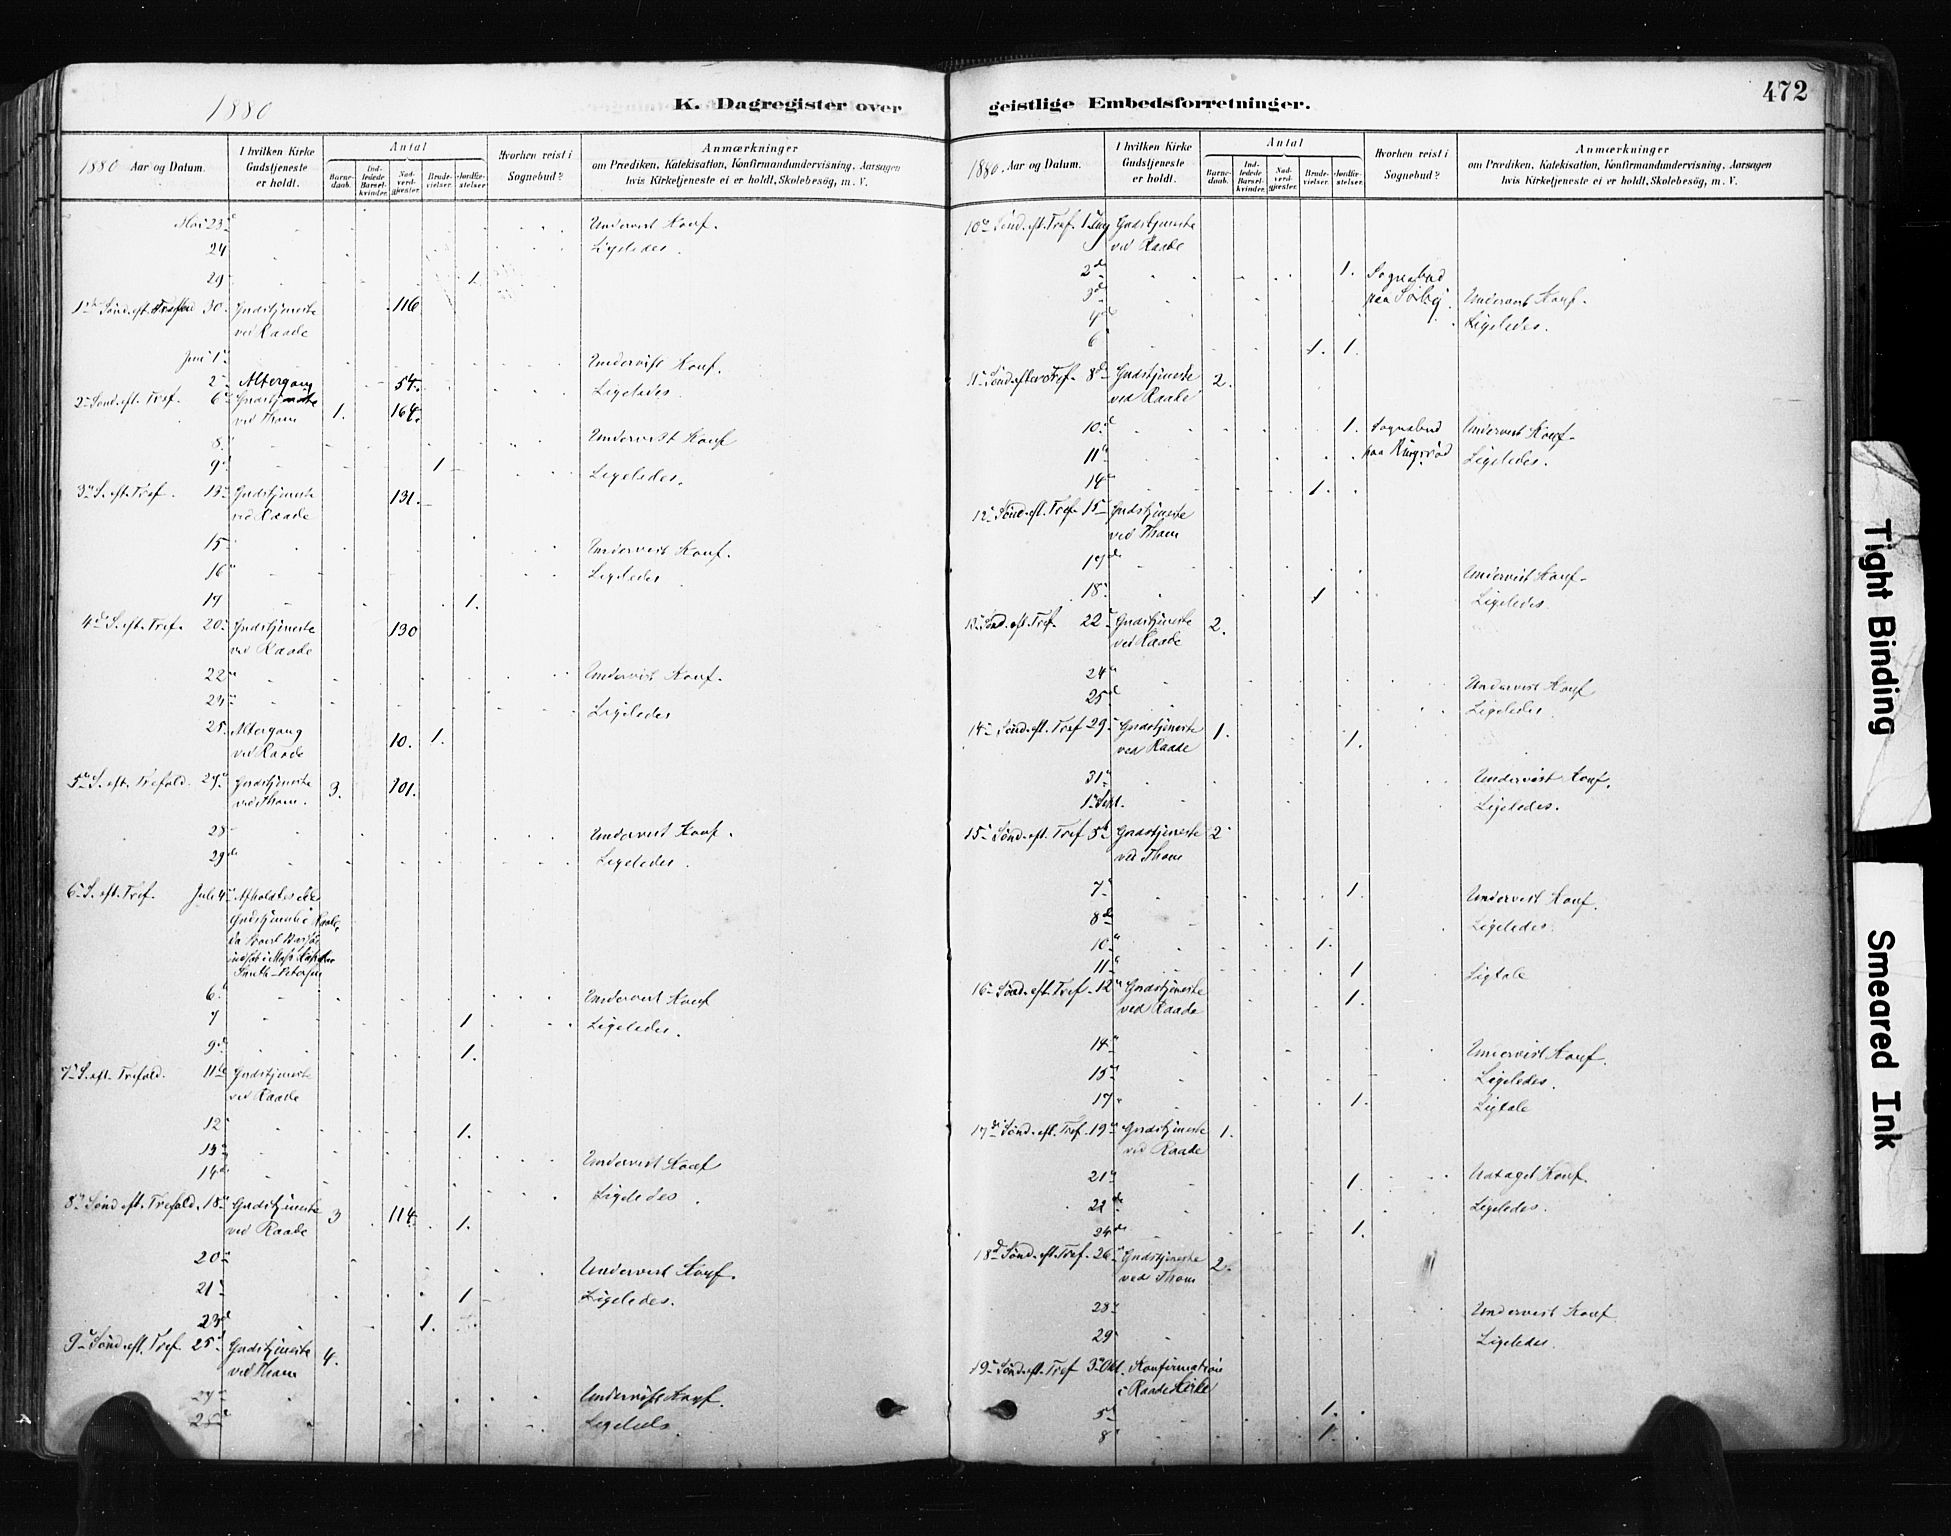 472
1880
K. Dagregister over geistlige Embedsforretninger.
1880 Aar og Datum.
I hvilken Kirke Gudstjeneste er holdt.
Antal
Barnedaab.
Indledede Barselkvinder.
Nadverdgjester.
Brudevielser.
Jordfæstelser.
Hvorhen reist i Sognebud?
Anmærkninger
om Prædiken, Katekisation, Konfirmandundervisning, Aarsagen
hvis Kirketjeneste ei er holdt, Skolebesøg, m. V.
Mai 23 Undervist Konf.
24 Ligeledes.
29 1
1ste Sønd. eft. 30. Gudstjeneste 116
ved Raade
Juni 1 Undervist Konf.
2 Altergang 54. Ligeledes
2 Sønd. eft. Tref. 6 Gudstjeneste 1. 164.
ved Thom
8 Undervist Konf
9 1 Ligeledes.
3 S. eft. Tref. 13 Gudstjeneste 131.
ved Raade
15 Undervist Konf.
16 Ligeledes
17 1.
4 S. eft. Tref. 20 Gudstjeneste 130
ved Raade
22 Undervist Konf.
23 Ligeledes
25 Altergang 10. 1.
ved Raade
5 S. eft. Trefold. 27 Gudstjeneste 3. 101.
ved Thom.
28 Undervist Konf.
29 Ligeledes.
6 S. eft. Tref. Juli 4 Afholdtes ikke
Gudstjeneste i Raade,
6 Undervist Konf
7 1 Ligeledes.
9 1.
7 S. eft. Trefold. 11 Gudstjeneste
ved Raade
12 1.
13 Undervist Konf
14 Ligeledes
8 Sønd eft. Trefold. 18 Gudstjeneste 3 114. 1.
ved Raade
20 Undervist Konf.
21 1 Ligeledes.
23 1.
9 Sønd. eft. Tref 25 Gudstjeneste 4.
ved Thom
27 Undervist Konf.
28 Ligeledes.
1880. Aar og Datum.
I hvilken Kirke Gudstjeneste er holdt.
Antal
Barnedaab.
Indledede Barselkvinder.
Nadverdgjester.
Brudevielser.
Jordfæstelser.
Hvorhen reist i Sognebud?
Anmærkninger
om Prædiken, Katekisation, Konfirmandundervisning, Aarsagen
hvis Kirketjeneste ei er holdt, Skolebesøg, m. V.
10 Sønd. eft. Tref. 1. Aug Gudstjeneste
ved Raade
2 1. Sognebud
3 paa Undervist Konf.
4 Ligeledes.
6 1. 1.
11 Sønd. efter Tref. 8 Gudstjeneste 2.
ved Raade
10 1. Sognebud Undervist Konf.
11 paa Ligeledes.
14 1.
12 Sønd. eft. Tref. 15 Gudstjeneste
ved Thom
17 Undervist Konf.
18 1 Ligeledes.
13 Sønd. eft. Tref. 22 Gudstjeneste 2.
ved Raade
24 Undervist Konf
25 Ligeledes.
14 Sønd. eft. Tref 29 Gudstjeneste 1. 1.
ved Raade
31 Undervist Konf.
1 Sept. Ligeledes.
15 Sønd. eft. Tref 5 Gudstjeneste 2
ved Thom
7 1. Undervist Konf.
8 Ligeledes.
10 1.
11 1 Ligtale
16 Sønd. eft. Tref. 12 Gudstjeneste 1.
ved Raade
14 Undervist Konf.
15 Ligeledes.
17 1. Ligtale
17 Sønd. eft. Tref. 19 Gudstjeneste 1.
ved Raade
21 1. Konf.
22 Ligeledes.
24 1.
18 Sønd. eft. Tref. 26 Gudstjeneste 2.
ved Thom
28 Undervist Konf
29 Ligeledes.
19 Sønd. eft. Tref 3 Okt. Konfirmation
i Raade Kirke
5 1.
8 1.
Tight Binding
Smeared Ink